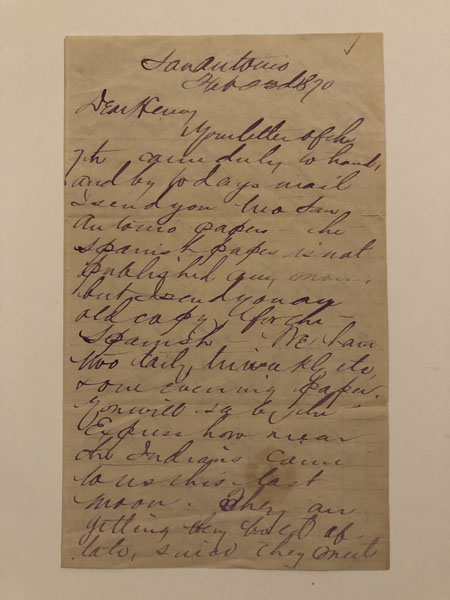 San Antonio
Feb 22d 1870
Dear Henry
Your letter of the
7th came duly to hand,
and by to days mail
I send you two San
Antonio papers – the
Spanish paper is not
published any more,
but I send you an
old copy for the
Spanish – We have
two daily, triweekly &c,
& one evening paper.
You will see by the
Express how near
the Indians came
to us this last
moon. They are
getting very bold of
late, since they